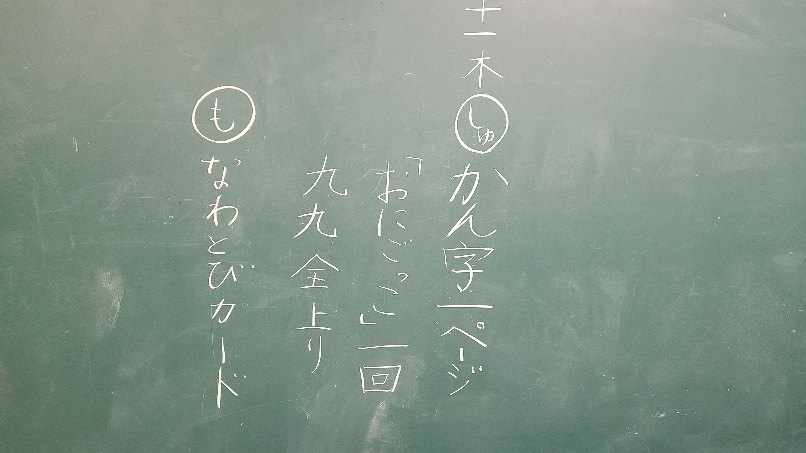 十一木
しゅ かん字一ページ
「おにごっこ」一回
九九全上り
も なわとびカード